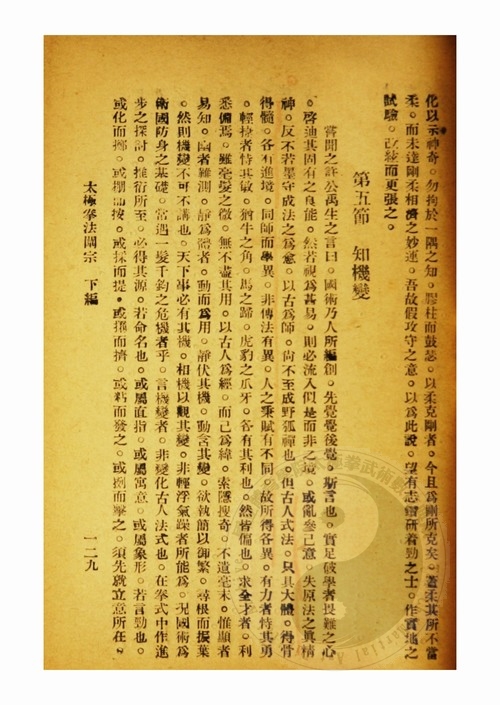 化以示神奇。勿拘於一隅之知。膠柱而鼓瑟。以柔克剛者。今且為剛所克矣。蓋柔其所不當
柔。而未達剛柔相濟之妙運。吾故假攻守之意。以為此說。望有志研着勁之士。作實地之
試驗。改絃而更張之。
第五節 知機變
嘗聞之許公禹生之言曰。國術乃人所編創。先覺覺後覺。斯言也。實足破學者畏難之心
。啓迪其固有之良能。然若視為甚易。則必流入似是而非之境。或亂參己意。失原法之真精
神。反不若墨守成法之為愈。以古為師。尚不至成野狐禪也。但古人式法。只具大體。得骨
得髓。各有進境。同師而學異。非傳法有異。人之秉賦有不同。故所得各異。有力者恃其勇
。輕捷者恃其敏。犄牛之角。馬之蹄。虎豹之爪牙。各有其利也。然皆偏也。求全才者。利
悉備焉。雖毫髮之微。無不盡其用。以古人為經。而己為緯。索隱搜奇。不遺毫末。惟顯者
易知。幽者難測。靜為體者。動而為用。靜伏其機。動含其變。欲執簡以御繁。尋根而振葉
。然則機變不可不講也。天下事必有其機。相機以觀其變。非輕浮氣躁者所能為。况國術為
衛國防身之基礎。常遇一髮千鈞之危機者乎。言機變者。非變化古人法式也。在拳式中作進
步之探討。推衍所至。必得其源。若命名也。或屬直指。或屬寓意。或屬象形。若言勁也。
或化而掷。或掤而按。或採而提。或擺而擠。或粘而發之。或捌而擊之。須先就立意所在。
太極拳法闡宗 下編
一二九